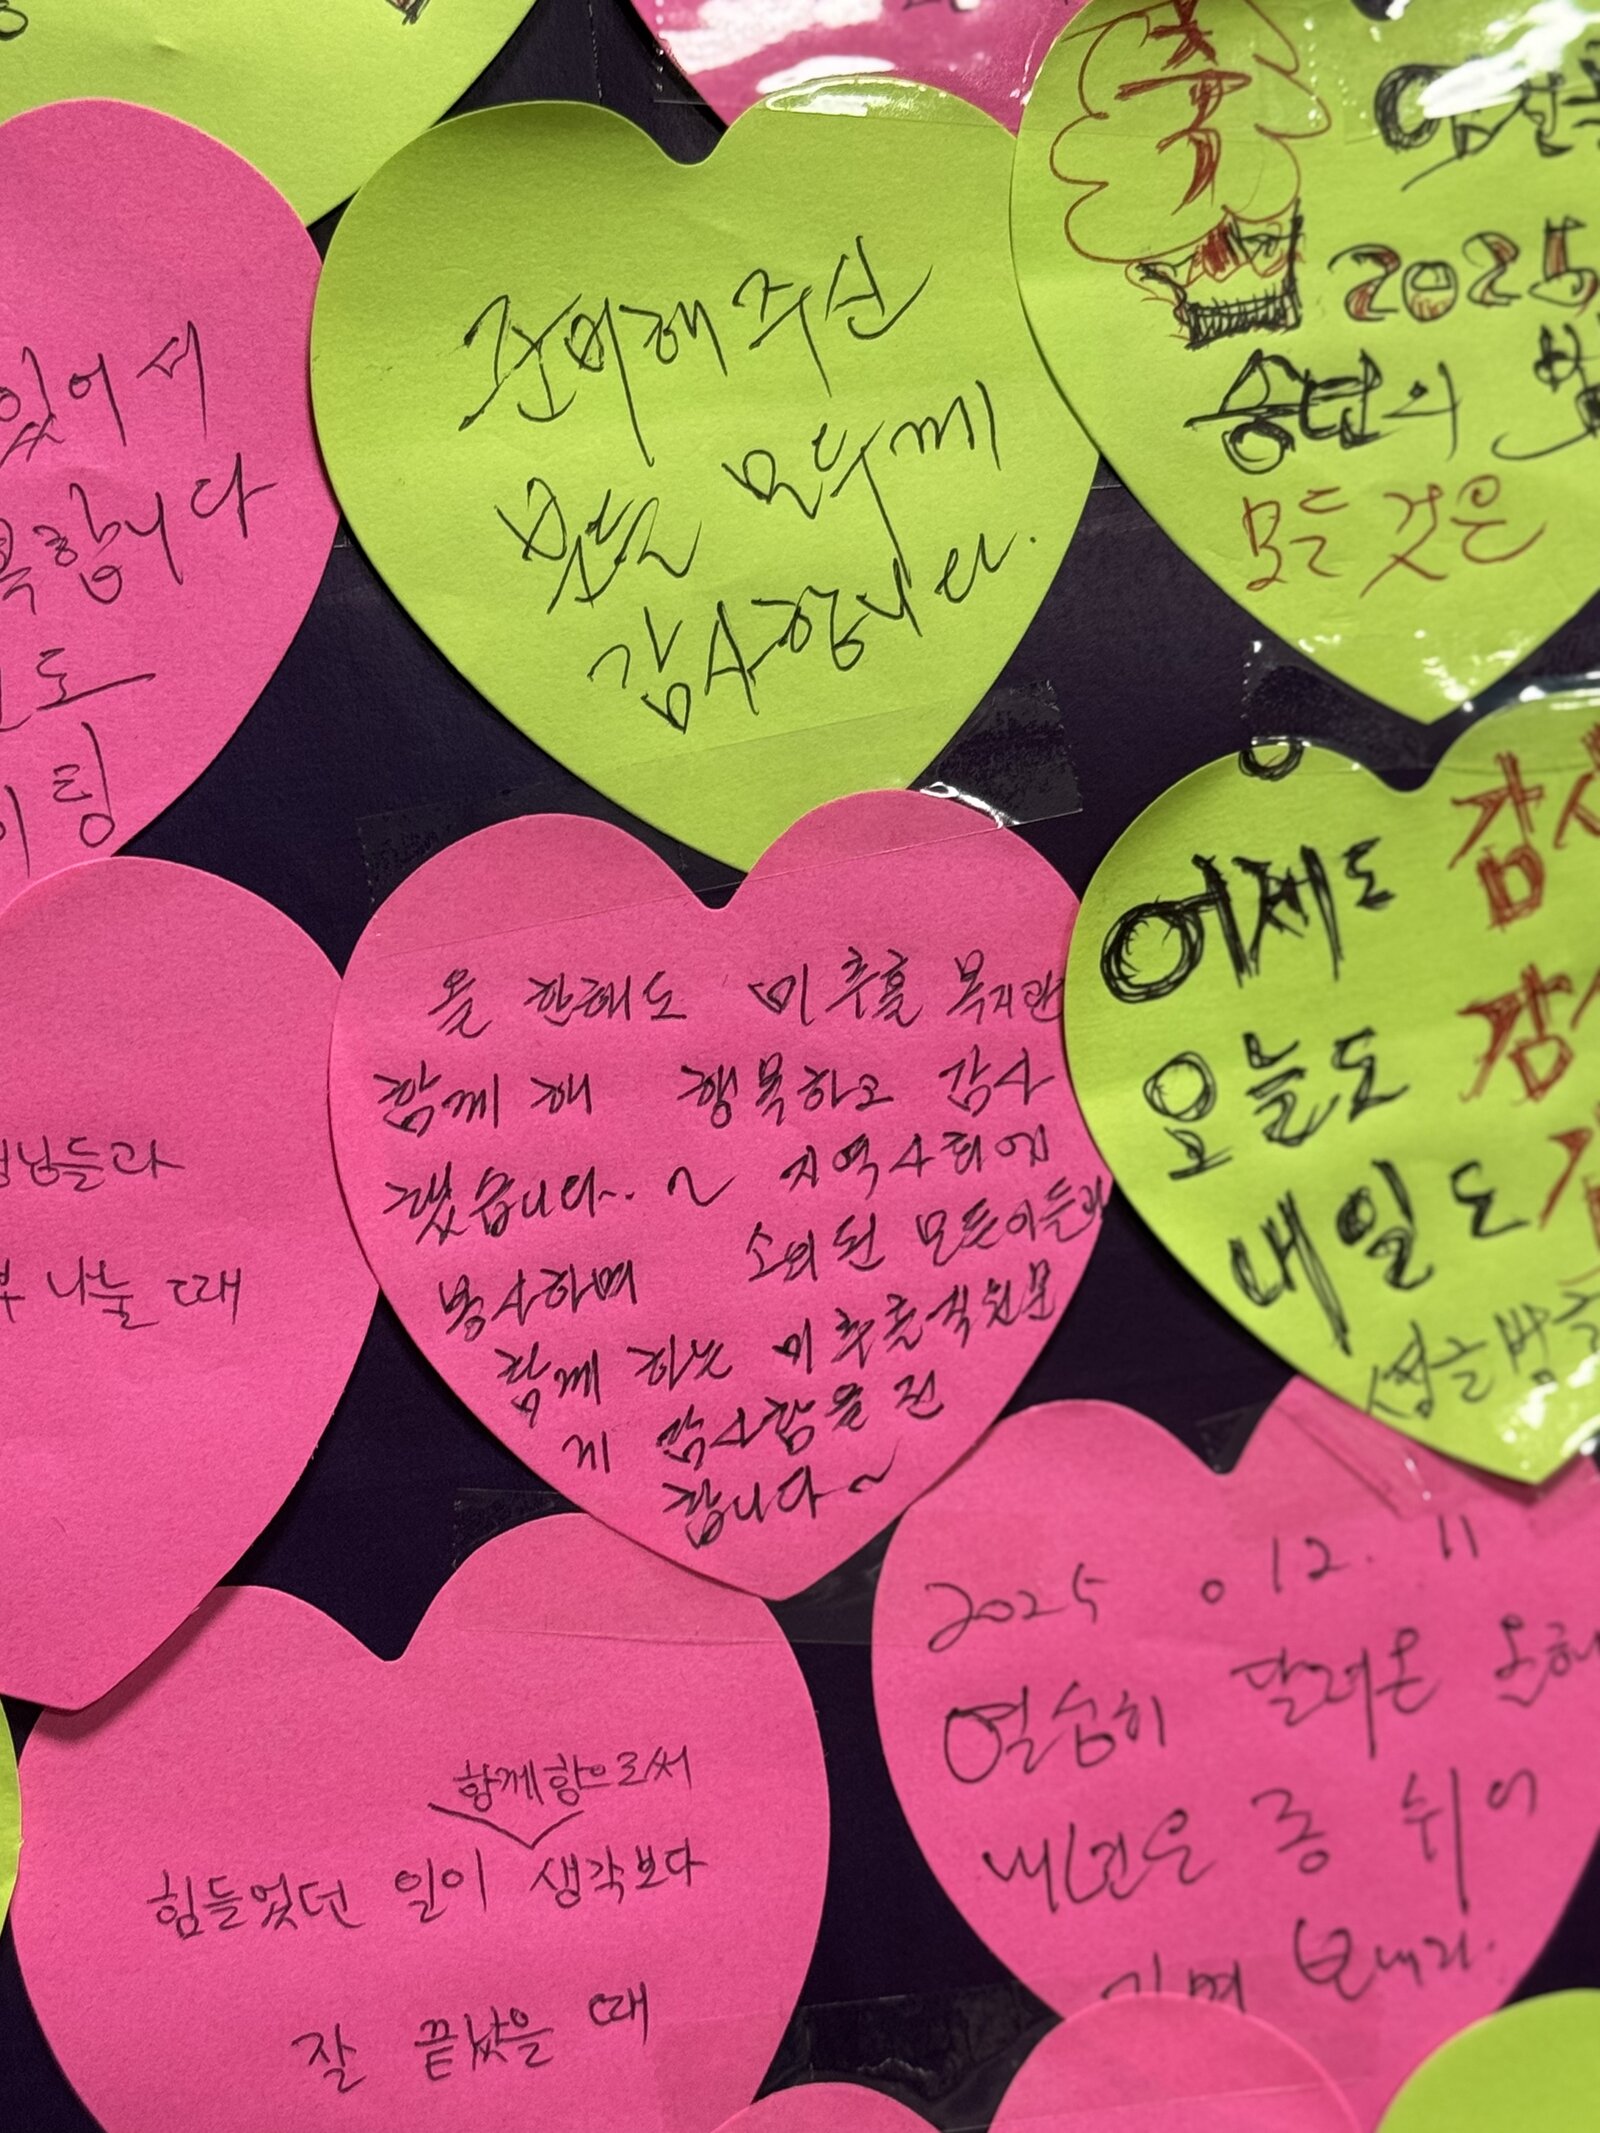 있어서
합니다
도
팅
준비해주신
분들 모두께
감사합니다.
2025
송년의
모든 것은
어제도 감사
오늘도 감
내일도
올 한해도 미추홀 복지관
함께 해 행복하고 감사
했습니다.. ~ 지역사회에
봉사하며 소외된 모든이들과
함께 하는 미추홀직원분
께 감사함을 전
합니다~
님들과
나눌 때
2025 . 12. 11
열심히 달려온 올해
내년은 좀 쉬어
가며 보내자.
함께함으로써
힘들었던 일이 생각보다
잘 끝났을 때